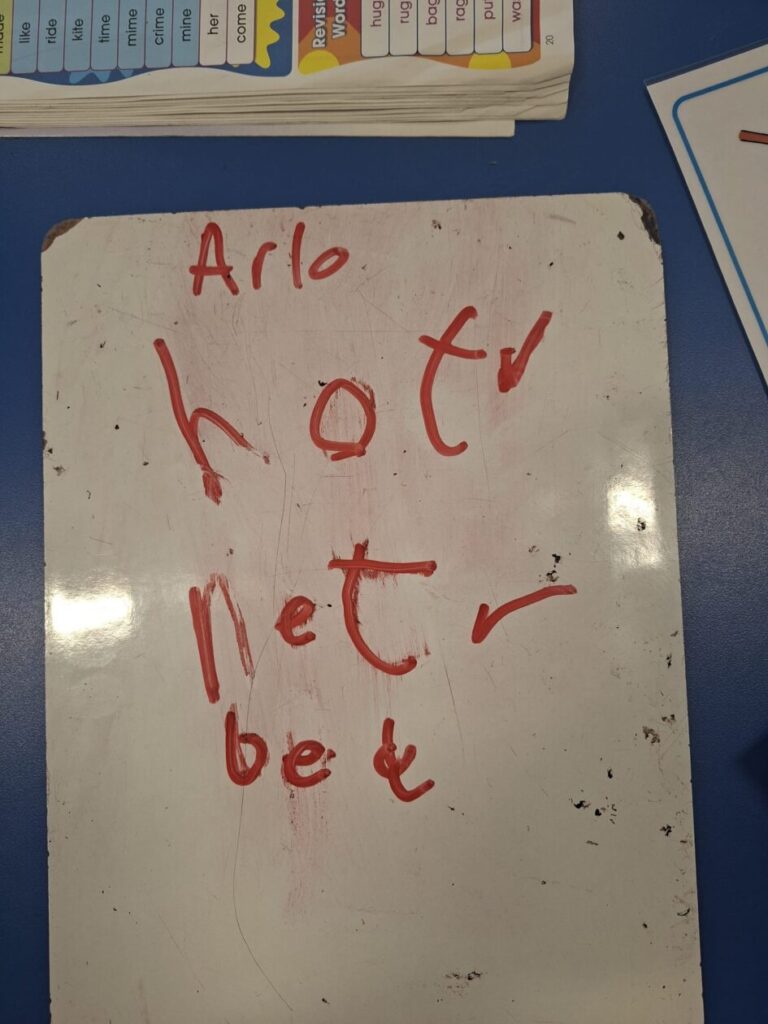 made
like
ride
kite
time
mime
crime
mine
her
come
Revision
Words
hug
rug
bag
rag
20
Arlo
hot ✓
net ✓
bet